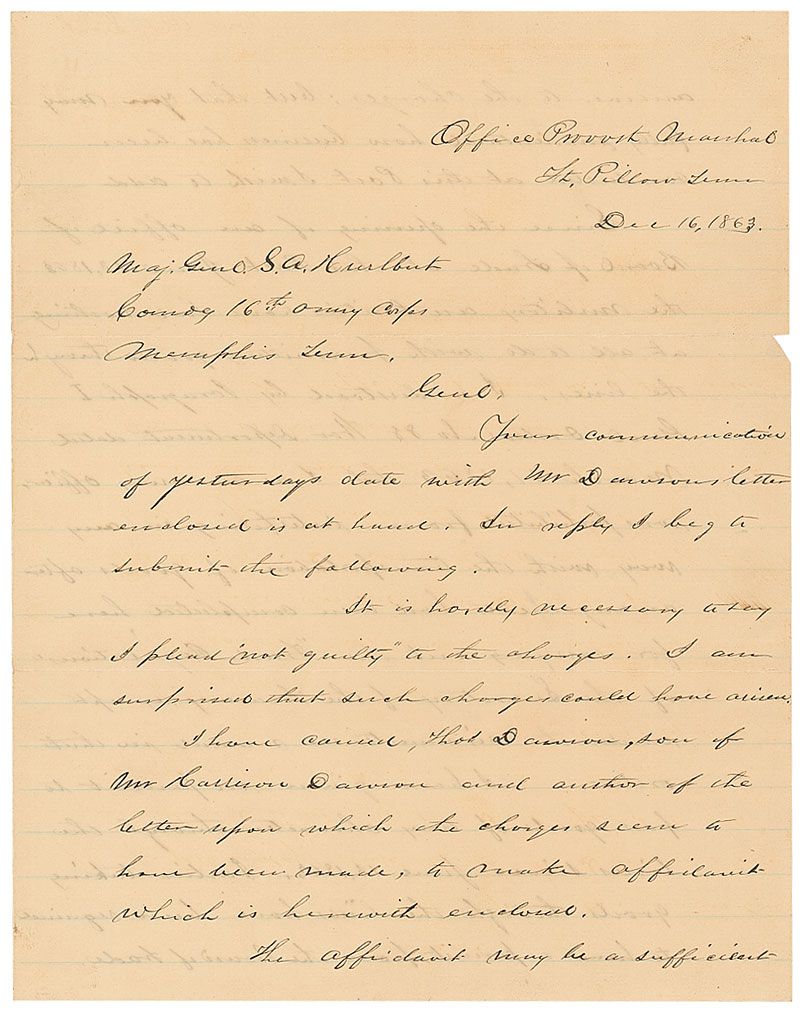 Office Provost Marshal
Ft, Pillow Tenn
Dec 16, 1863.
Maj. Genl. S. A. Hurlbut
Comdg 16th Army Corps
Memphis Tenn.
Genl,
Your communication
of yesterdays date with Mr Dawsons letter
enclosed is at hand. In reply I beg to
submit the following.
It is hardly necessary to say
I plead "not guilty" to the charges. I am
surprised that such charges could have arisen.
I have caused, Thos Dawson, son of
Mr Harrison Dawson and author of the
letter upon which the charges seem to
have been made, to make affidavit
which is herewith enclosed.
The affidavit may be a sufficient